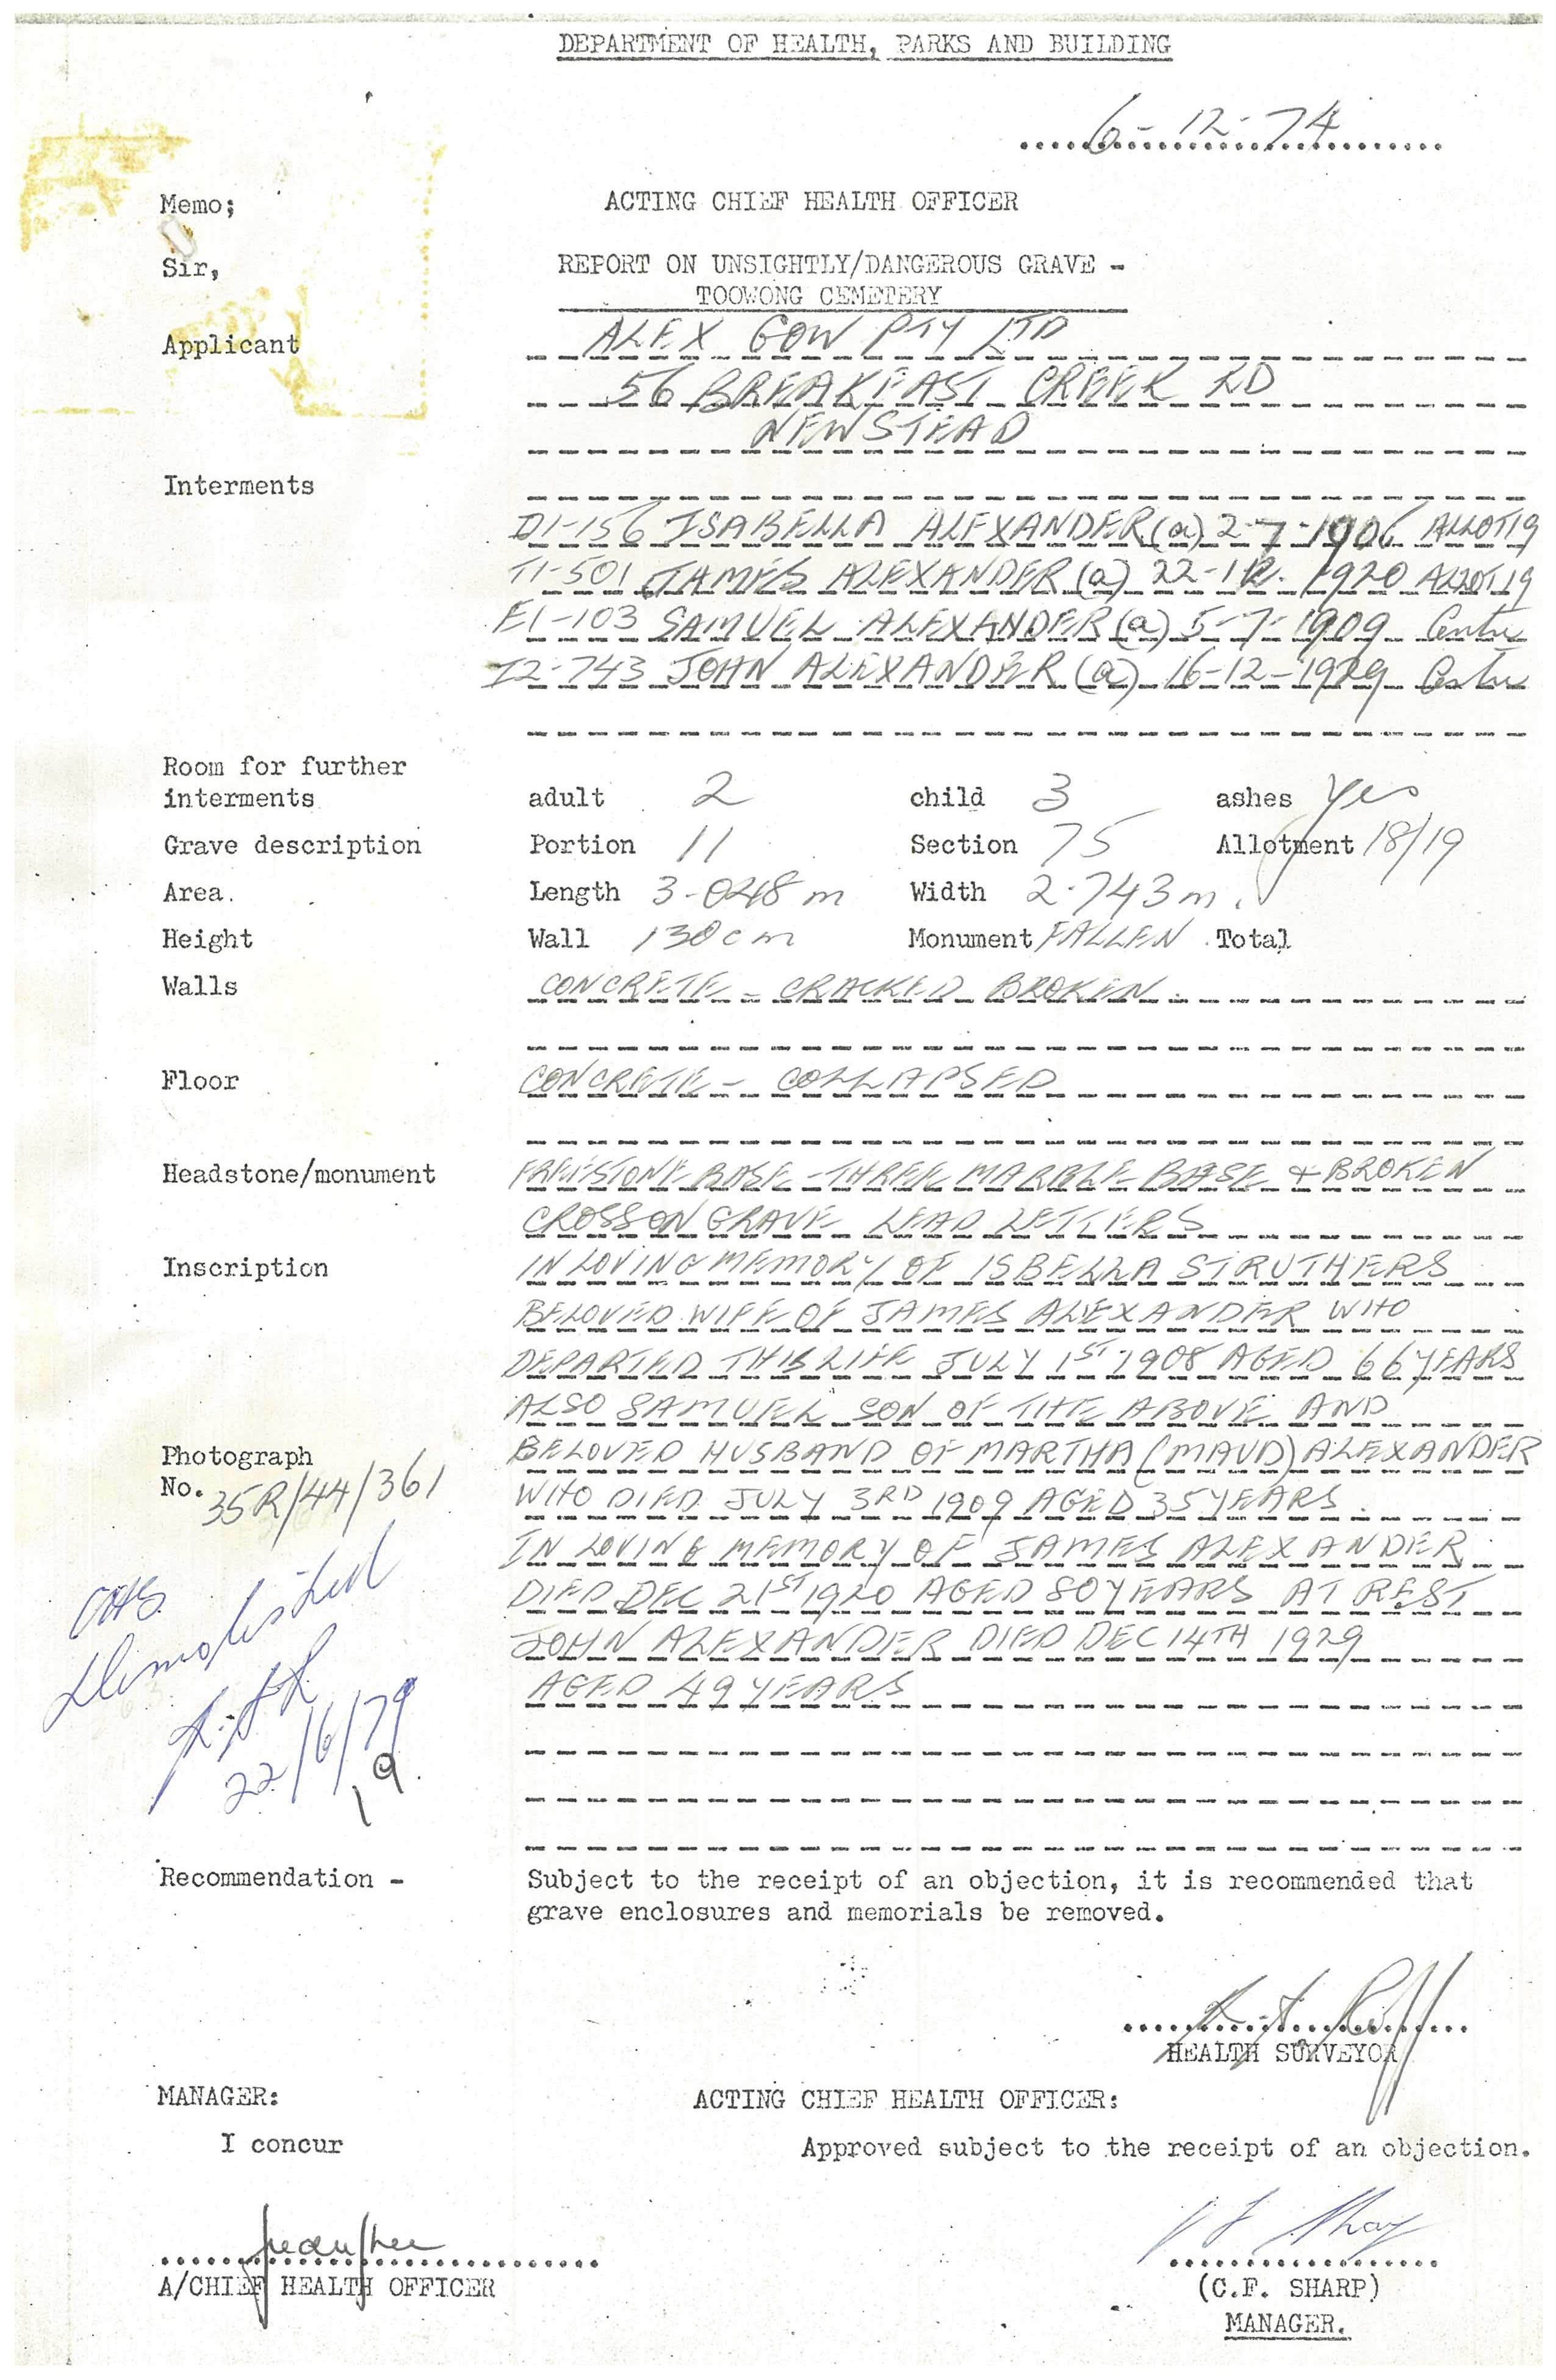 DEPARTMENT OF HEALTH, PARKS AND BUILDING
6-12-74
Memo; ACTING CHIEF HEALTH OFFICER
Sir, REPORT ON UNSIGHTLY/DANGEROUS GRAVE -
TOOWONG CEMETERY
Applicant ALEX GOW PTY LTD
56 BREAKFAST CREEK RD
NEWSTEAD
Interments
D1-156 ISABELLA ALEXANDER (a) 2-7-1906 ALLOT19
T1-501 JAMES ALEXANDER (a) 22-12-1920 ALLOT19
E1-103 SAMUEL ALEXANDER (a) 5-7-1909 Centre
I2-743 JOHN ALEXANDER (a) 16-12-1929 Centre
Room for further
interments adult 2 child 3 ashes Yes
Grave description Portion 11 Section 75 Allotment 18/19
Area. Length 3.048 m Width 2.743 m.
Height Wall 130cm Monument FALLEN Total
Walls CONCRETE - CRACKED BROKEN.
Floor CONCRETE - COLLAPSED
Headstone/monument FREESTONE BASE - THREE MARBLE BASE + BROKEN
CROSS ON GRAVE LEAD LETTERS
Inscription IN LOVING MEMORY OF ISBELLA STRUTHERS
BELOVED WIFE OF JAMES ALEXANDER WHO
DEPARTED THIS LIFE JULY 1ST 1908 AGED 66 YEARS
ALSO SAMUEL SON OF THE ABOVE AND
Photograph BELOVED HUSBAND OF MARTHA (MAUD) ALEXANDER
No. 35R/44/361 WHO DIED JULY 3RD 1909 AGED 35 YEARS.
IN LOVING MEMORY OF JAMES ALEXANDER
DIED DEC 21ST 1920 AGED 80 YEARS AT REST
JOHN ALEXANDER DIED DEC 14TH 1929
AGED 49 YEARS
Demolished
22/6/79
19.
Recommendation - Subject to the receipt of an objection, it is recommended that
grave enclosures and memorials be removed.
HEALTH SURVEYOR
MANAGER: ACTING CHIEF HEALTH OFFICER:
I concur Approved subject to the receipt of an objection.
A/CHIEF HEALTH OFFICER (C.F. SHARP)
MANAGER.